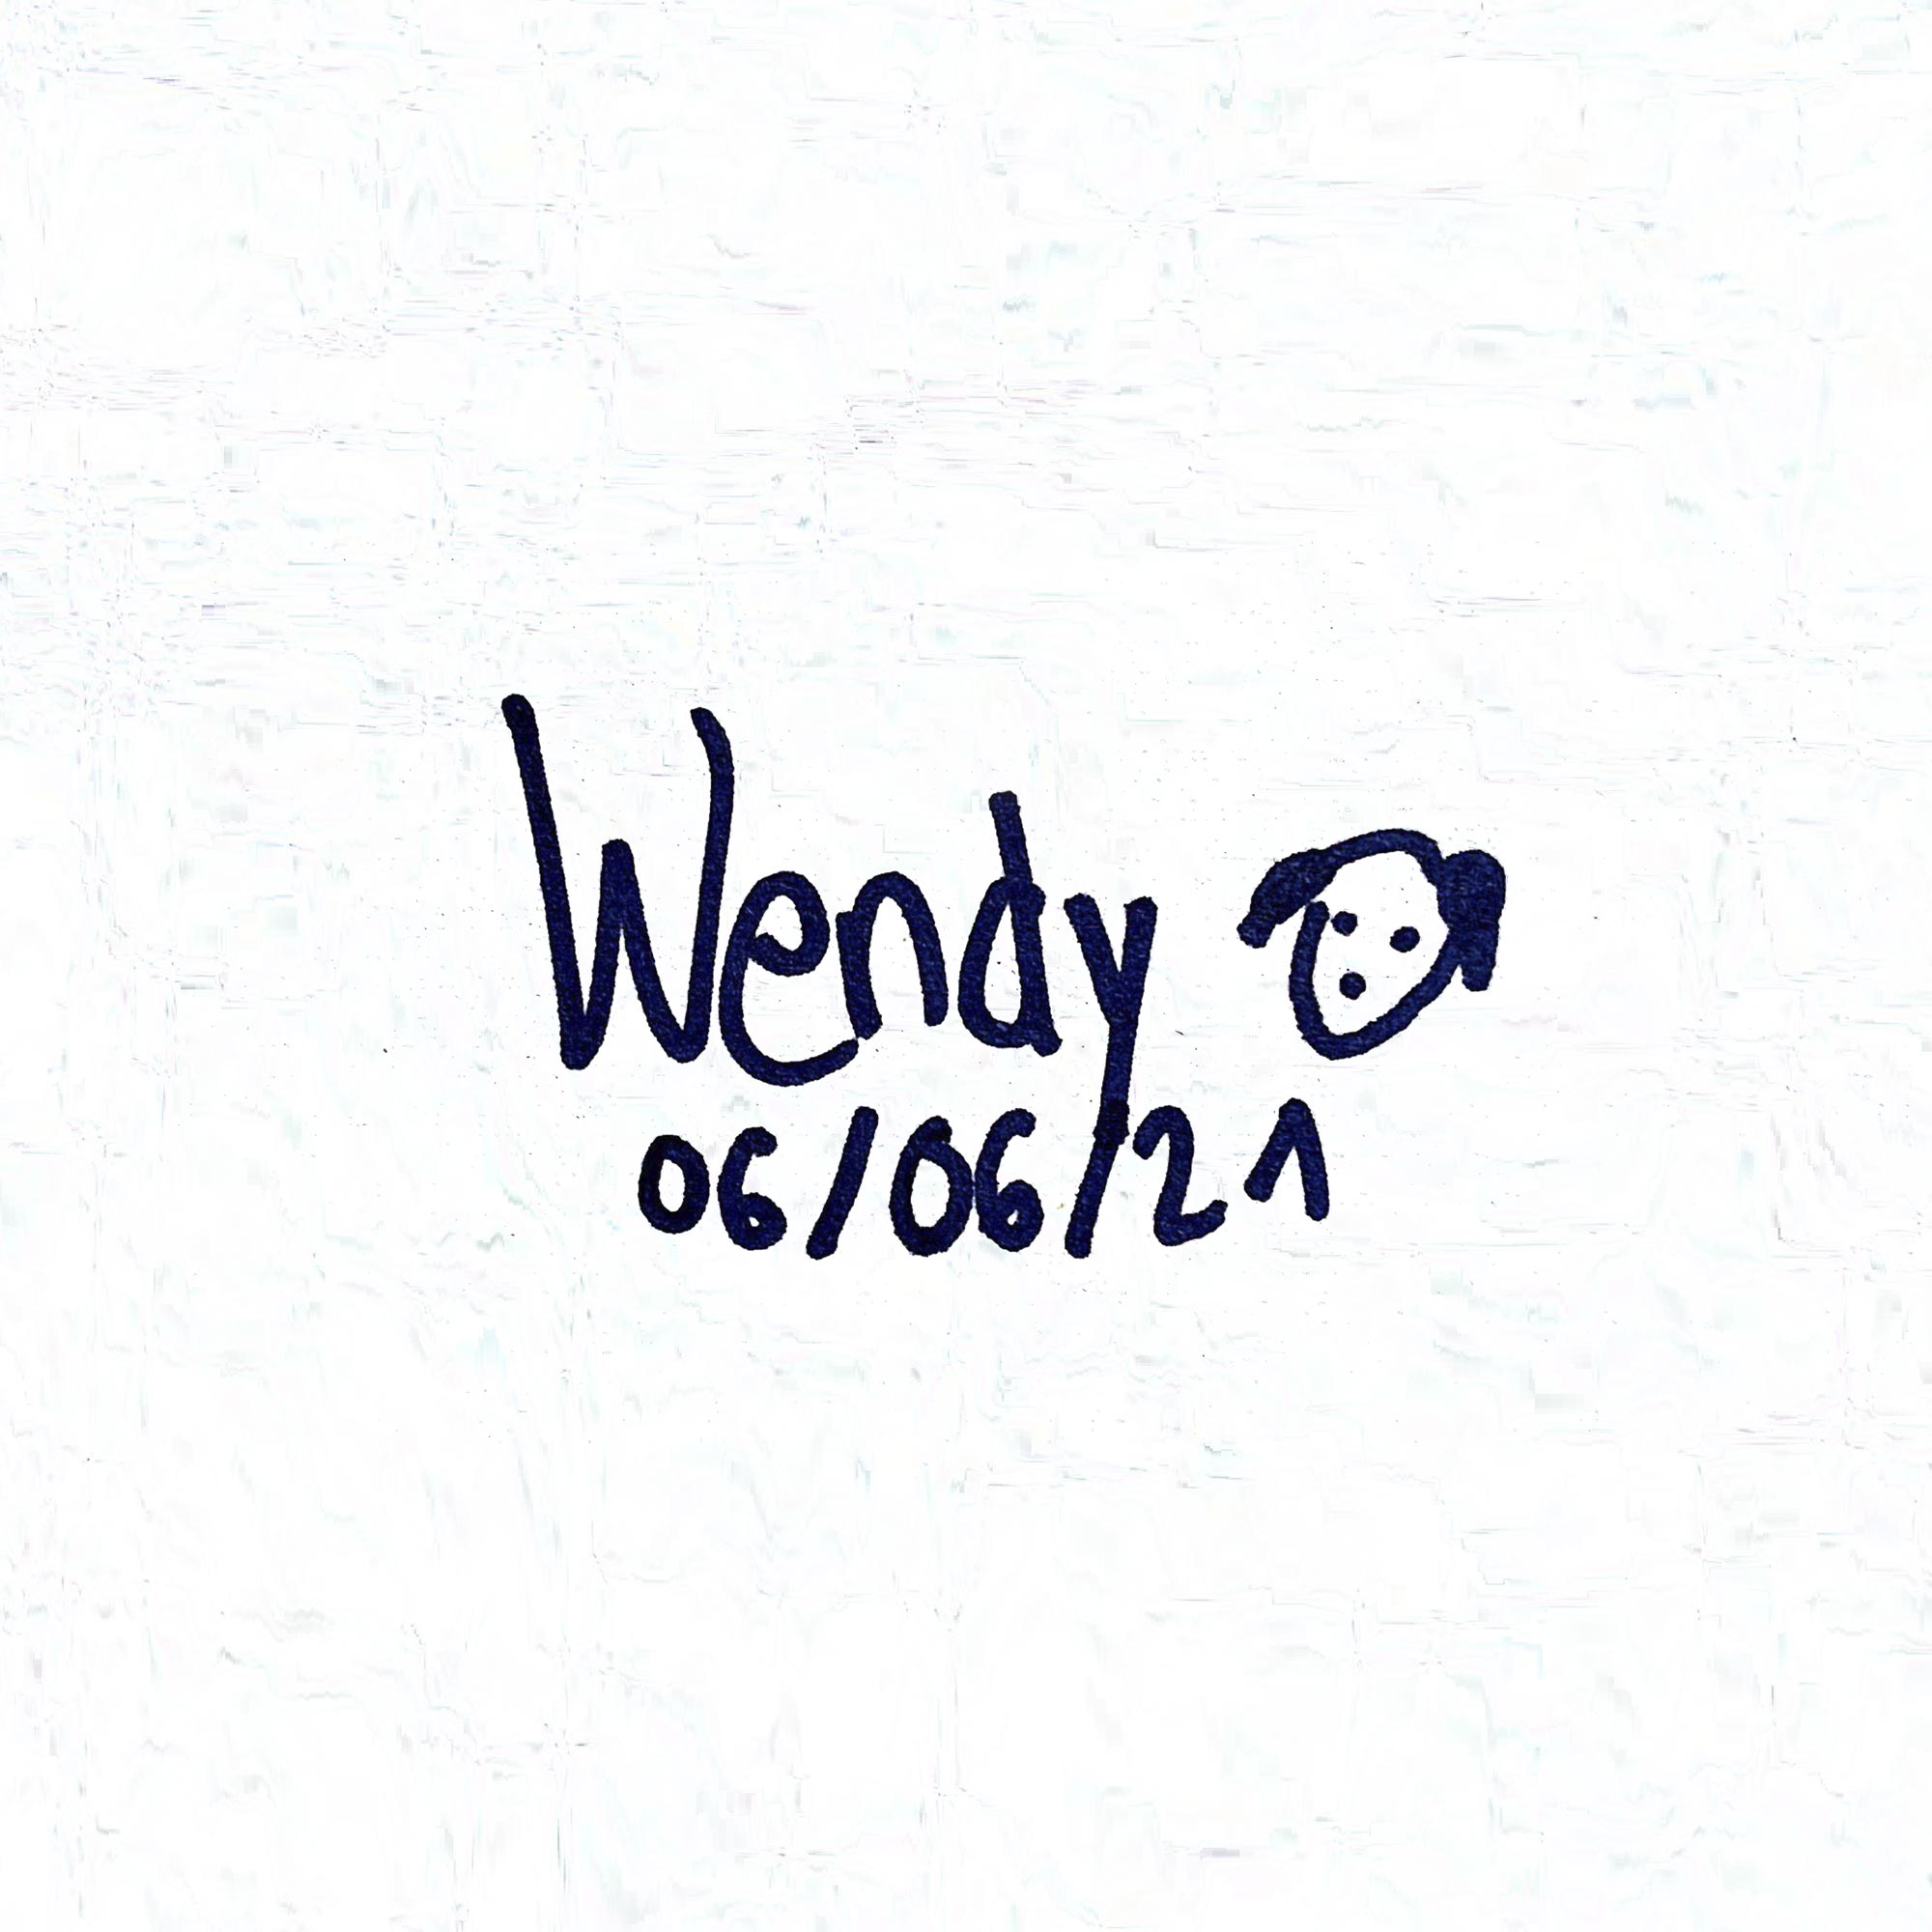 Wendy
06/06/21